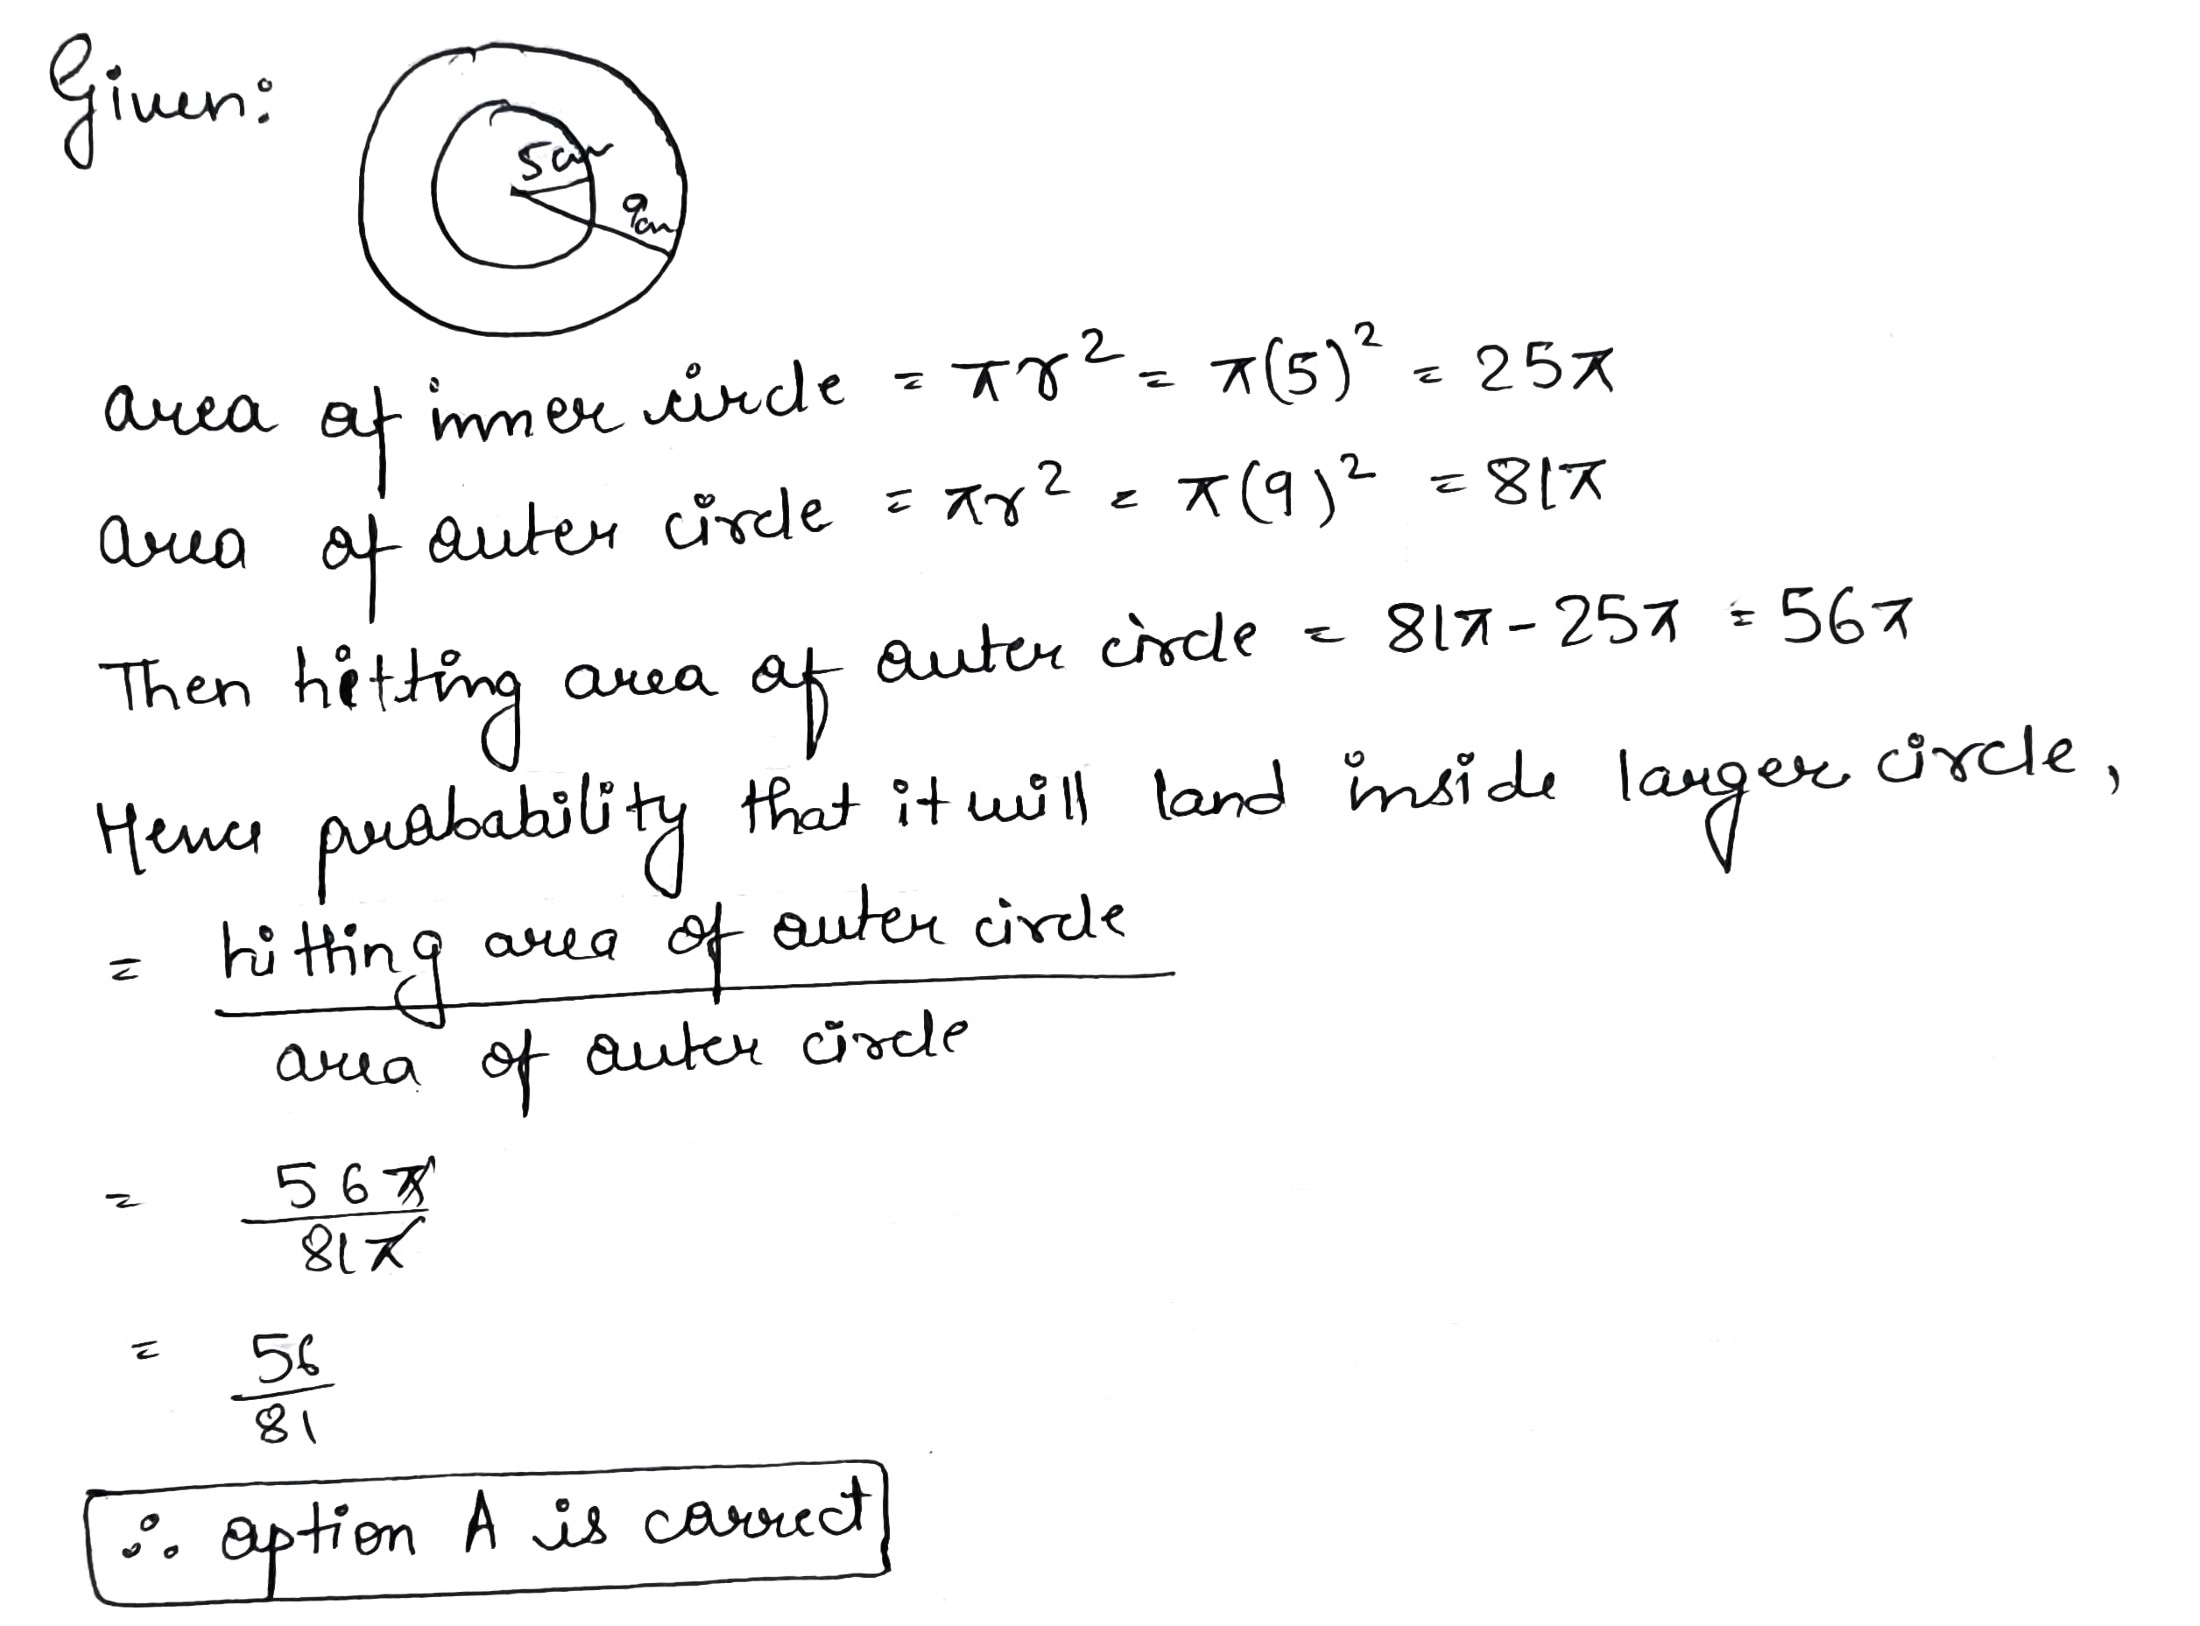 Given:
5cm
9cm
area of inner circle = πr² = π(5)² = 25π
area of outer circle = πr² = π(9)² = 81π
Then hitting area of outer circle = 81π - 25π = 56π
Hence probability that it will land inside larger circle,
= hitting area of outer circle
area of outer circle
= 56π
81π
= 56
81
∴ option A is correct